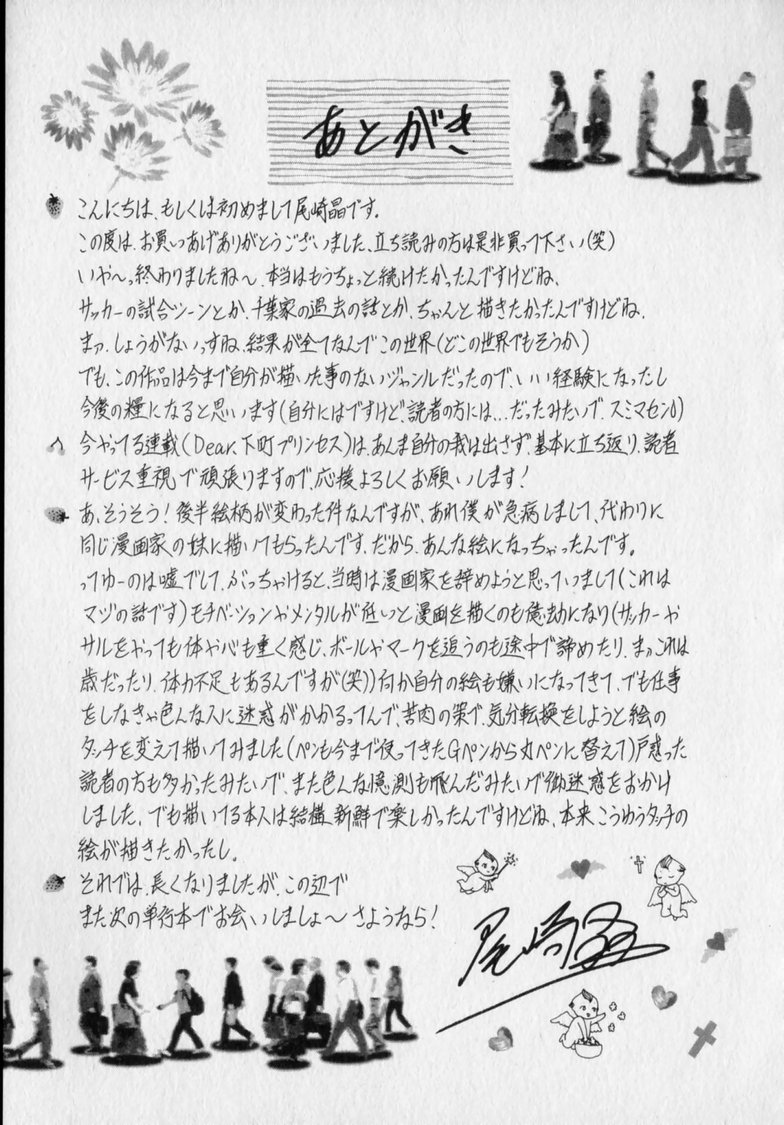 あとがき
こんにちは、もしくは初めまして尾崎晶です。
この度は、お買いあげありがとうございました、立ち読みの方は是非買って下さい(笑)
いや〜っ終わりましたね〜、本当はもうちょっと続けたかったんですけどね、
サッカーの試合シーンとか、千葉家の過去の話とか、ちゃんと描きたかったんですけどね、
まァ、しょうがないっすね、結果が全てなんでこの世界(どこの世界でもそうか)
でも、この作品は今まで自分が描いた事のないジャンルだったので、いい経験になったし
今後の糧になると思います(自分にはですけど、読者の方には...だったみたいで、スミマセン)
今やってる連載(Dear.下町プリンセス)は、あんま自分の我は出さず、基本に立ち返り、読者
サービス重視で頑張りますので、応援よろしくお願いします!
あ、そうそう!後半絵柄が変わった件なんですが、あれ僕が急病しまして、代わりに
同じ漫画家の妹に描いてもらったんです、だから、あんな絵になっちゃったんです。
ってゆーのは嘘でして、ぶっちゃけると、当時は漫画家を辞めようと思っていまして(これは
マヅの話です)モチベーションやメンタルが低いと漫画を描くのも億劫になり(サッカーや
サルをやっても体や心も重く感じ、ボールやマークを追うのも途中で諦めたり、まっこれは
歳だったり、体力不足もあるんですが(笑))何か自分の絵も嫌いになってきて、でも仕事
をしなきゃ色んな人に迷惑がかかるってんで、苦肉の策で、気分転換をしようと絵の
タッチを変えて描いてみました(ペンも今まで使ってきたGペンから丸ペンに替えて)戸惑った
読者の方も多かったみたいで、また色んな憶測も飛んだみたいで御迷惑をおかけ
しました、でも描いてる本人は結構、新鮮で楽しかったんですけどね、本来こうゆうタッチの
絵が描きたかったし。
それでは、長くなりましたが、この辺で
また次の単行本でお会いしましょ〜さようなら!
尾崎晶